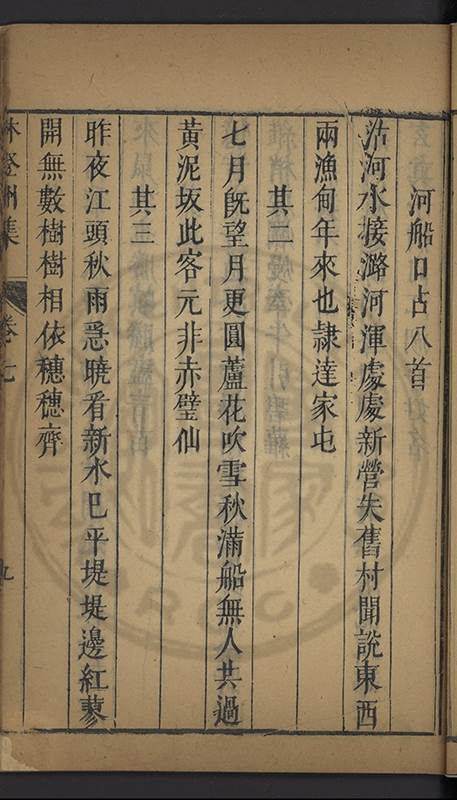 河船口占八首
沽河水接潞河渾處處新營失舊村聞說東西
兩漁甸年來也隷達家屯
其二
七月旣望月更圓蘆花吹雪秋滿船無人共過
黃泥坂此客元非赤壁仙
其三
昨夜江頭秋雨急曉看新水巳平堤堤邊紅蓼
開無數樹樹相依穗穗齊
林登州集 卷七 九